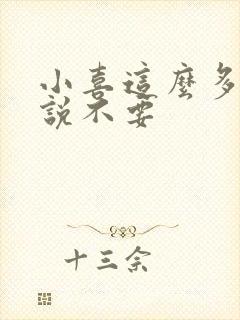 小喜這麼多
說不要
十三余